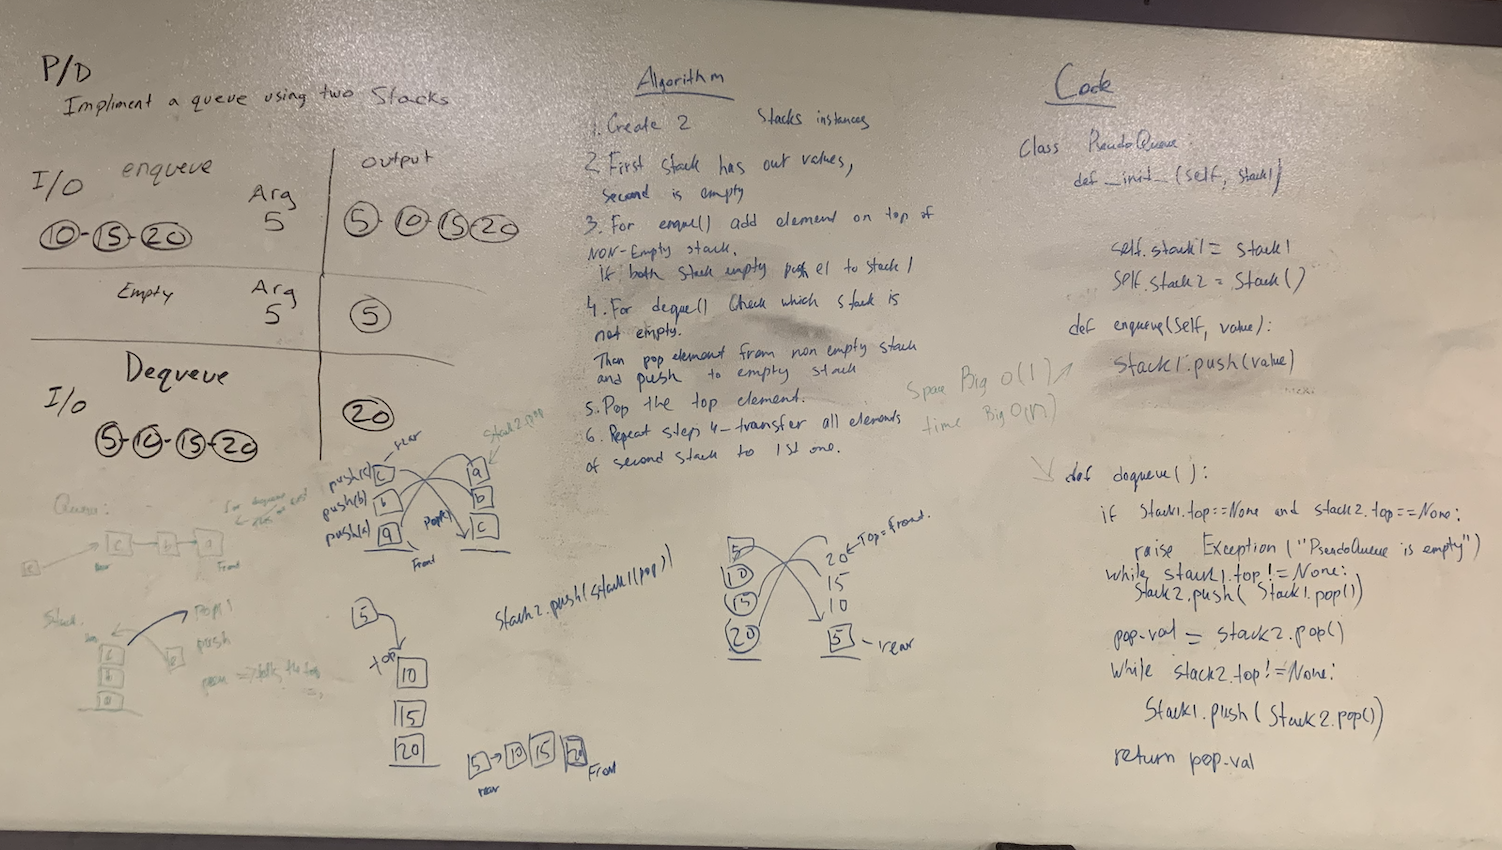 P/D
Impliment a queue using two Stacks
I/O enqueve
Arg
5
output
10-15-20
5-10-15-20
Empty
Arg
5
5
Dequeve
I/o
5-10-15-20
20
push(c) c
rear
push(b) b
push(a) a
Front
pop()
stack2.pop
a
b
c
Queue:
c
b
a
rear
Front
Stack.
pop()
push
5
top
10
15
20
Stack2.push(stack1(pop))
5 → 10 15 20
rear
Front
Algorithm
1. Create 2 Stacks instances
2. First stack has out values,
second is empty
3. For enque() add element on top of
NON-Empty stack.
if both stack empty push el to stack 1
4. For deque() Check which stack is
not empty.
Than pop element from non empty stack
and push to empty stack
5. Pop the top element.
6. Repeat steps 4-transfer all elements
of second stack to 1st one.
Space Big O(1)
time Big O(n)
5
10
15
20
20 Top=Front.
15
10
5 - rear
Code
Class PseudoQueue:
def _init_(self, stack1)
self.stack1 = stack1
self.stack2 = Stack()
def enqueve(self, value):
stack1.push(value)
def dequeve():
if stack1.top==None and stack2.top==None:
raise Exception ("PseudoQueue is empty")
while stack1.top!=None:
Stack2.push( Stack1.pop())
pop-val = stack2.pop()
While stack2.top!=None:
Stack1.push( Stack2.pop())
return pop-val